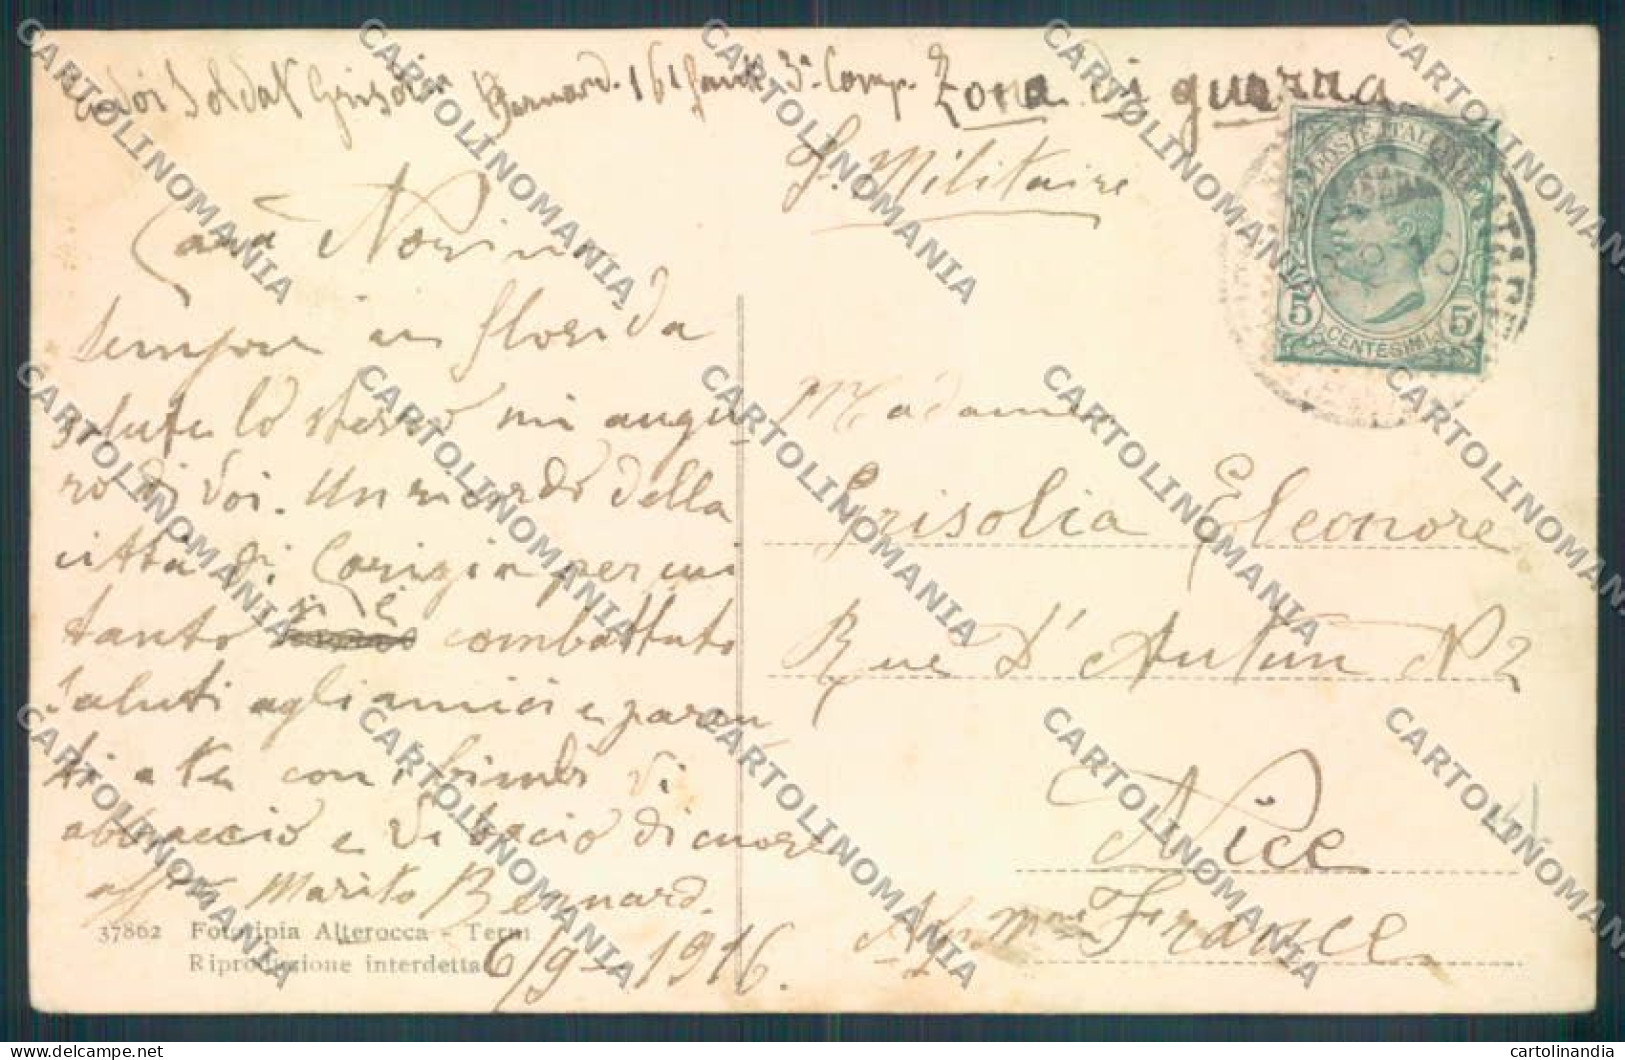 Soldat Grisolia Bernard. 161 fant. 3ª. Comp. Zona di guerra
P. Militaire
Cara Norina
Sempre in florida
salute lo stesso mi augu
ro di voi. Un ricordo della
città di Gorizia per cui
tanto si è combattuto
Saluti agli amici e paren
ti a te con i bimbi vi
abraccio e vi bacio di cuore
aff.mo Marito Bernard.
6/9-1916.
37862 Fototipia Alterocca - Terni
Riproduzione interdetta
POSTE ITALIANE
5 5
CENTESIMI
Madame
Grisolia Eleonore
Rue D'Autun Nº 2
Nice
France
CARTOLINOMANIA
cartolinandia